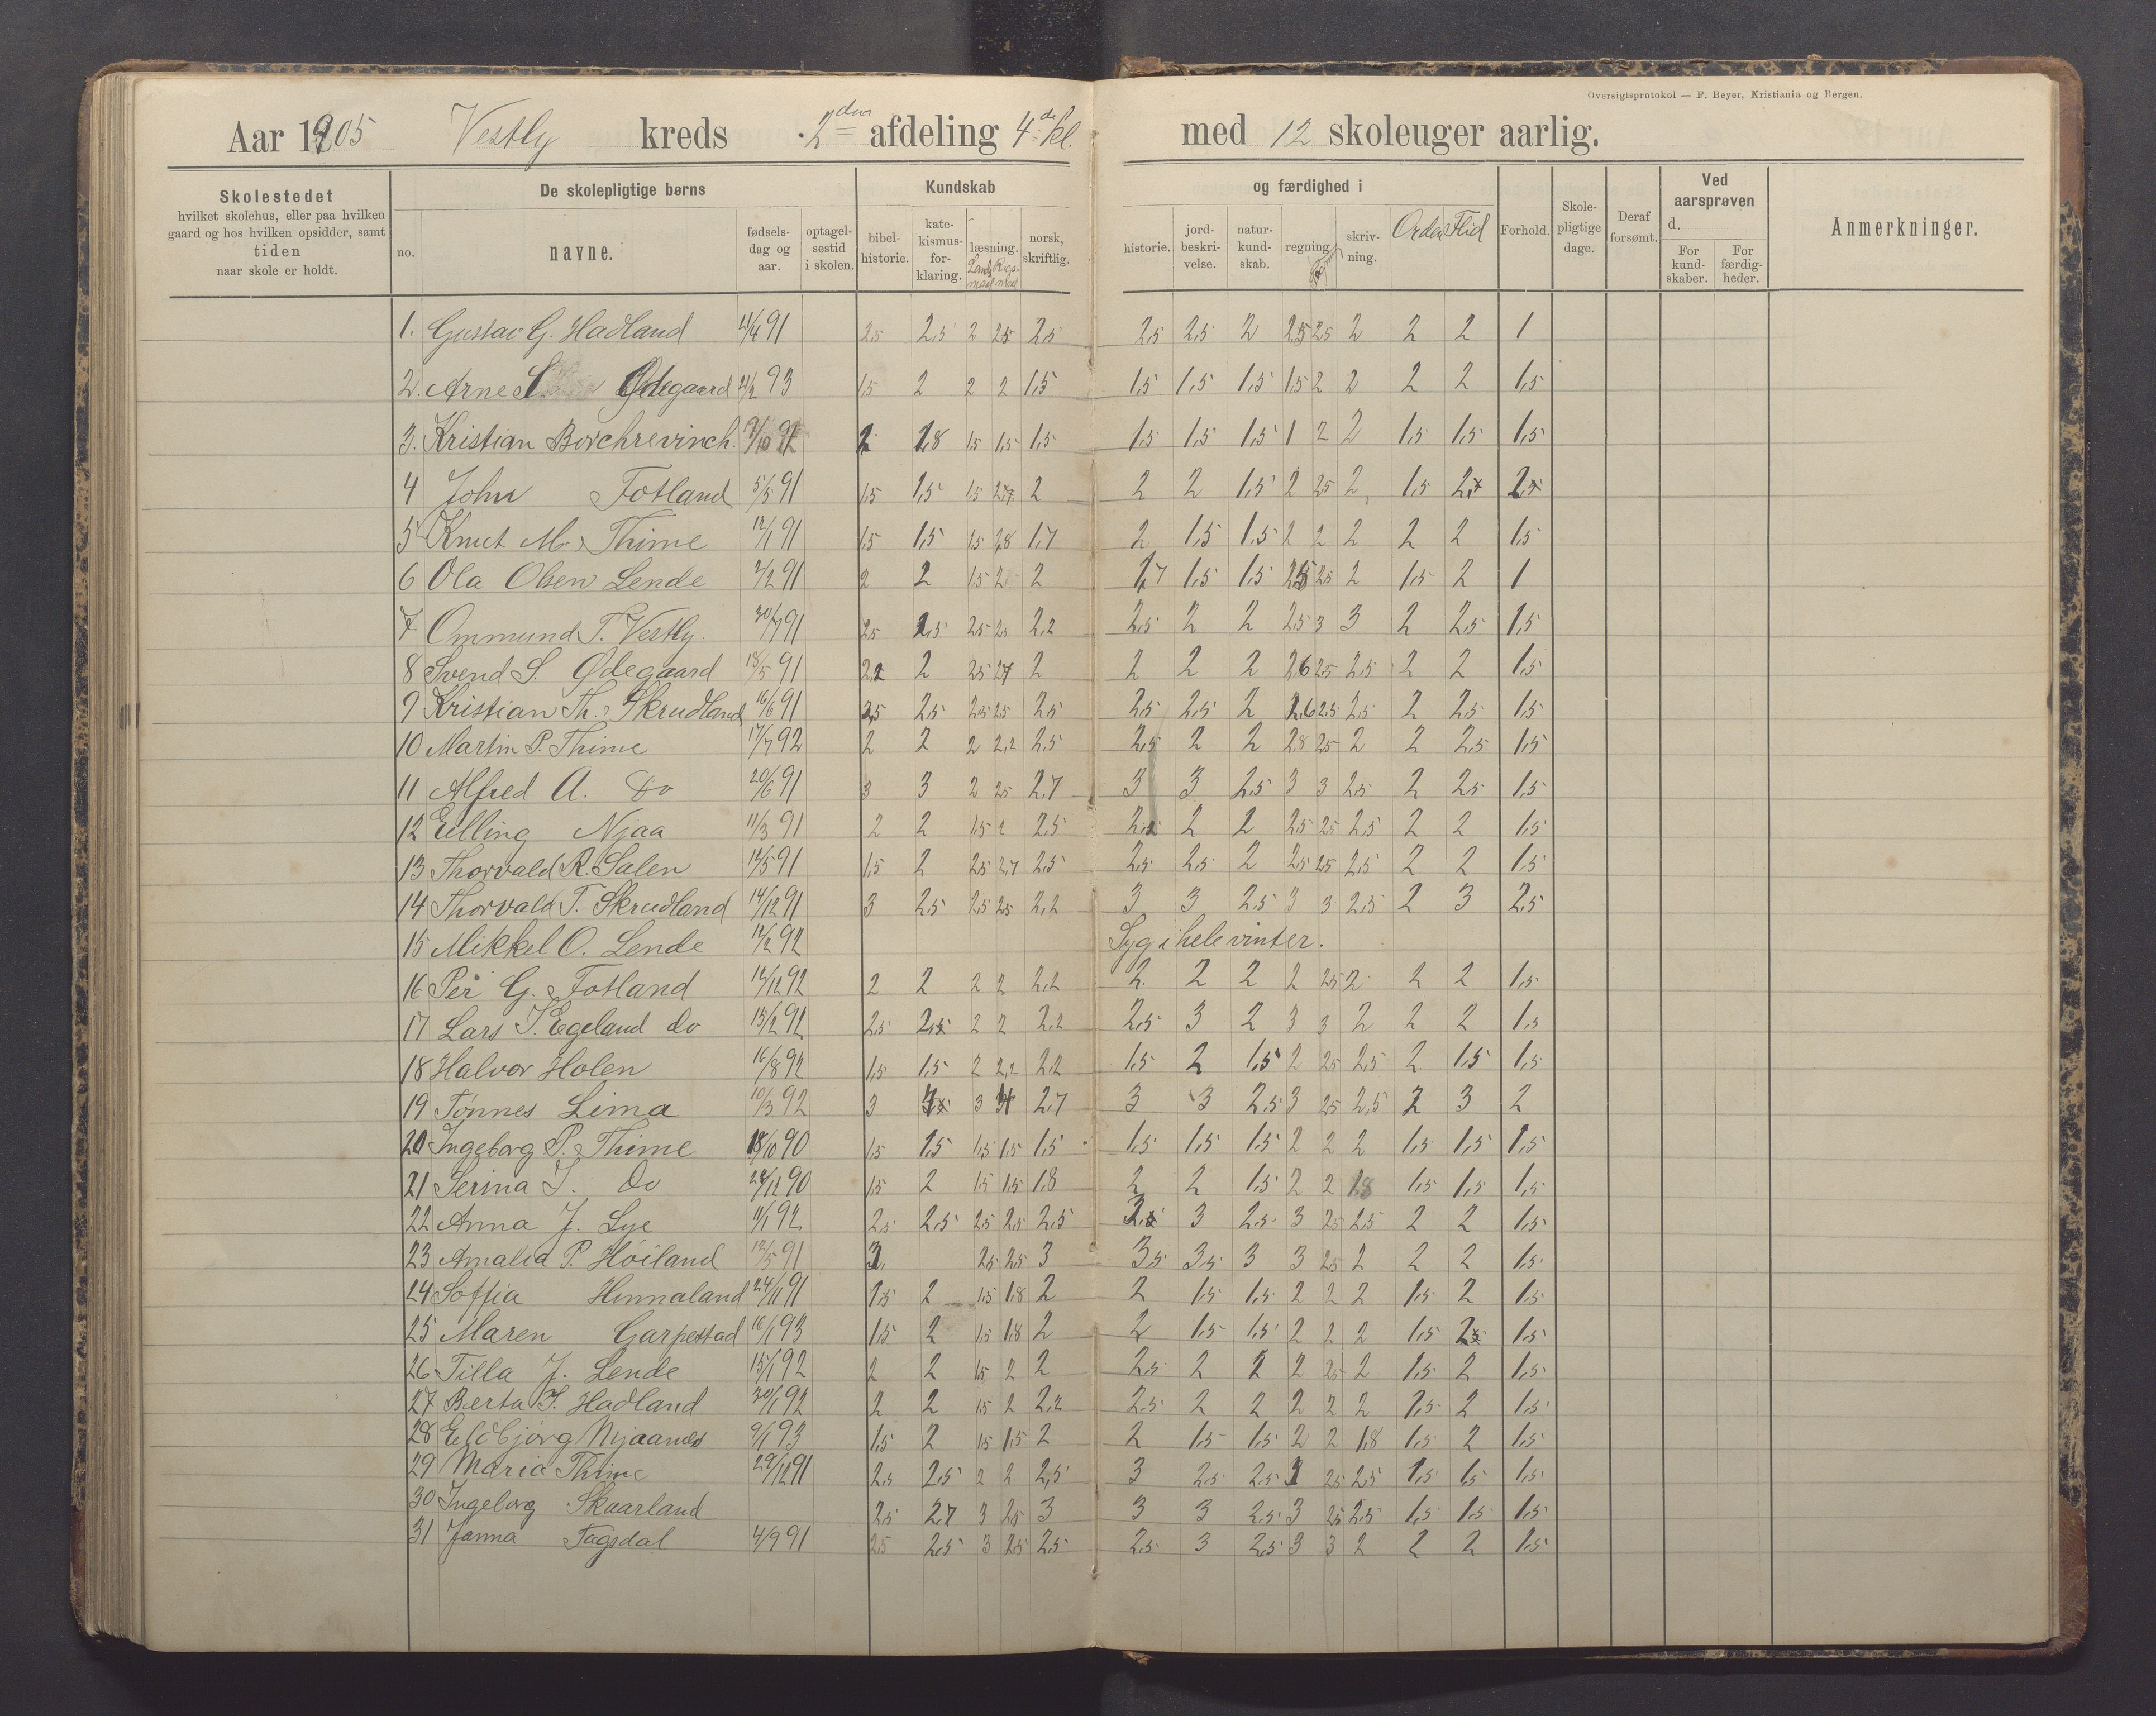 Oversigtsprotokol — F. Beyer, Kristiania og Bergen.
Aar 1905 Vestly kreds 2den afdeling 4de kl. med 12 skoleuger aarlig.
Skolestedet hvilket skolehus, eller paa hvilken gaard og hos hvilken opsidder, samt tiden naar skole er holdt.
De skolepligtige børns
no. navne. fødsels-dag og aar. optagel-sestid i skolen.
Kundskab og færdighed i
bibel-historie. kate-kismus-for-klaring. læsning. Lands maal Rigs maal norsk, skriftlig. historie. jord-beskri-velse. natur-kund-skab. regning skriv-ning. Orden Flid Forhold. Skole-pligtige dage. Deraf forsømt.
Ved aarsprøven d. For kund-skaber. For færdig-heder.
Anmerkninger.
1. Gustav G. Hadland 21/4 91 2,5 2,5 2 2,5 2,5 2,5 2,5 2 2,5 2,5 2 2 2 1
2. Arne S Ødegaard 21/2 93 1,5 2 2 2 1,5 1,5 1,5 1,5 1,5 2 2 2 2 1,5
3. Kristian Borchrevinch. 2 1,8 1,5 1,5 1,5 1,5 1,5 1,5 1 2 2 1,5 1,5 1,5
4 John Fotland 5/5 91 1,5 1,5 1,5 2,7 2 2 2 1,5 2 2,5 2 1,5
5 Knut M. Thime 12/1 91 1,5 1,5 1,5 2,8 1,7 2 1,5 1,5 2 2 2 2 2 1,5
6 Ola Olsen Lende 2/2 91 2 2 1,5 2 2 1,7 1,5 1,5 2,5 2,5 2 1,5 2 1
7 Ommund T. Vestly. 30/7 91 2,5 2,5 2,5 2,5 2,2 2,5 2 2 2,5 3 3 2 2,5 1,5
8 Svend S. Ødegaard 18/5 91 2,2 2 2,5 2,7 2 2 2 2 2,6 2,5 2,5 2 2 1,5
9 Kristian Th. Skrudland 16/6 91 2,5 2,5 2,5 2,5 2,5 2,5 2,5 2 2,6 2,5 2,5 2 2,5 1,5
10 Martin P. Thime 17/7 92 2 2 2 2,2 2,5 2,5 2 2 2,8 2,5 2 2 2,5 1,5
11 Alfred A. Do 20/6 91 3 3 2 2,5 2,7 3 3 2,5 3 3 2,5 2 2,5 1,5
12 Eilling Njaa 11/3 91 2 2 1,5 2 2,5 2,2 2 2 2,5 2,5 2,5 2 2 1,5
13 Thorvald R. Salen 14/5 91 1,5 2 2,5 2,7 2,5 2,5 2,5 2 2,5 2,5 2,5 2 2 1,5
14 Thorvald T. Skrudland 14/12 91 3 2,5 2,5 2,5 2,2 3 3 2,5 3 3 2,5 2 3 2,5
15 Mikkel O. Lende 12/2 92 Syg i hele vinter.
16 Per G. Fotland 12/12 92 2 2 2 2 2,2 2 2 2 2 2,5 2 2 2 1,5
17 Lars T. Egeland do 15/2 92 2,5 2,5 2 2 2,2 2,5 3 2 3 3 2 2 2 1,5
18 Halvor Holen 16/8 92 1,5 1,5 2 2,2 2,2 1,5 2 1,5 2 2,5 2,5 2 1,5 1,5
19 Tønnes Lima 10/3 92 3 3 4 2,7 3 3 2,5 3 2,5 2,5 2 3 2
20 Ingeborg P. Thime 18/10 90 1,5 1,5 1,5 1,5 1,5 1,5 1,5 1,5 2 2 2 1,5 1,5 1,5
21 Serina I. Do 90 1,5 2 1,5 1,5 1,8 2 2 1,5 2 2 1,8 1,5 1,5 1,5
22 Anna J. Lye 11/1 92 2,5 2,5 2,5 2,5 2,5 3 2,5 3 2,5 2,5 2 2 1,5
23 Amalia P. Høiland 12/5 91 3 2,5 2,5 3 3,5 3,5 3 3 2,5 2 2 2 1,5
24 Soffia Hinnaland 24/11 91 1,5 2 1,5 1,8 2 2 1,5 1,5 2 2 2 1,5 2 1,5
25 Maren Garpestad 16/1 93 1,5 2 1,5 1,8 2 2 1,5 1,5 2 2 2 1,5 2,5 1,5
26 Tilla J. Lende 15/1 92 2 2 1,5 2 2 2,5 2 2 2 2,5 2 1,5 2 1,5
27 Berta I. Hadland 30/1 92 2 2 1,5 2 2,2 2,5 2 2 2 2 2 1,5 2 1,5
28 Eldbjørg Njaanes 9/1 93 1,5 2 1,5 1,5 2 2 1,5 1,5 2 2 1,8 1,5 2 1,5
29 Maria Thime 29/12 91 2,5 2,5 2 2 2,5 3 2,5 2,5 3 2,5 2,5 1,5 1,5 1,5
30 Ingeborg Skaarland 2,5 2,7 3 2,5 3 3 3 2,5 3 2,5 2,5 1,5 1,5 1,5
31 Janna Tagsdal 4/9 91 2,5 2,5 3 2,5 2,5 2,5 3 2,5 3 3 2 2 2 1,5